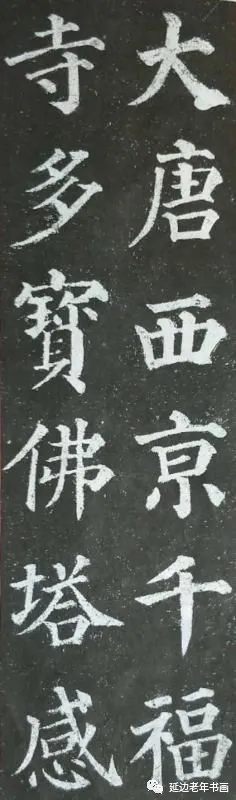 大唐西京千福
寺多寶佛塔感
延边老年书画